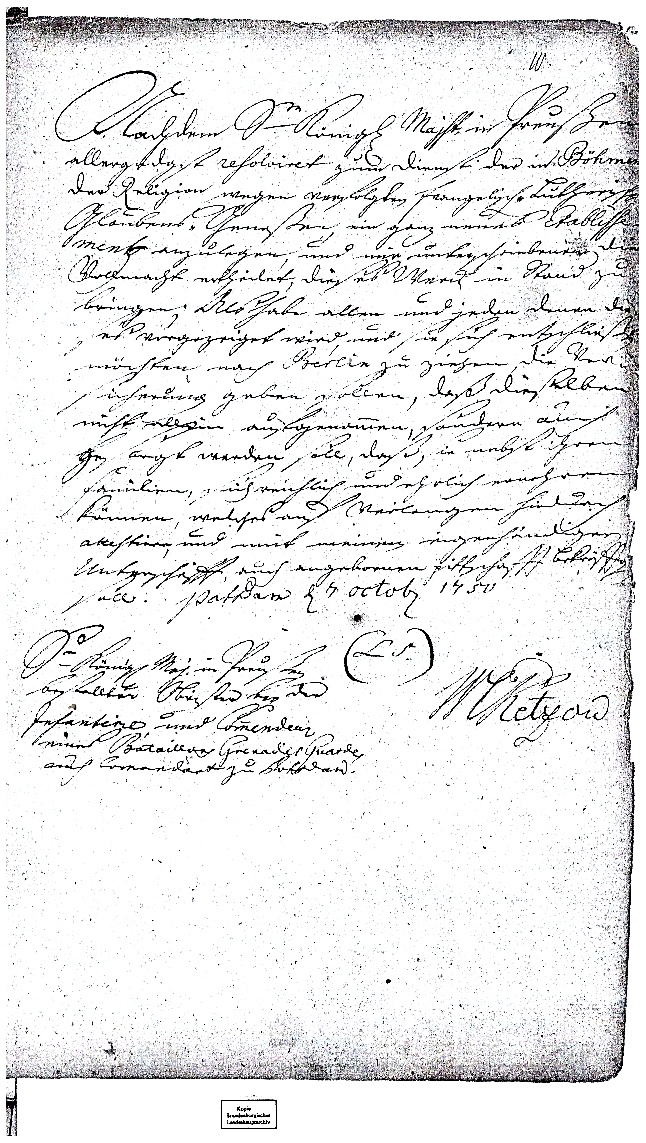 10
Nachdem Sr. Königl. Majst. in Preußen
allergnädigst resolviret zum Dienst der in Böhmen
der Religion wegen verfolgten Evangelisch Lutherischen
Glaubens-Genoßen, ein ganz neues Etablisse-
ment anzulegen, und mir unterschriebenen die
Vollmacht ertheilet, dieses Werck in Stand zu
bringen; Als habe allen und jeden denen
es vorgezeiget wird, und sie sich entschließen
möchten nach Berlin zu ziehen, die Ver-
sicherung geben sollen, daß dieselben
nicht allein aufgenommen, sondern auch
gesorgt werden soll, daß sie nebst ihren
Familien, sich reichlich und ehrlich ernehren
können, welches auf Verlangen hiedurch
attestire, und mit meiner eigenhändigen
Unterschrifft, auch angebornen Pittschafft bekräfftigen
soll. Potsdam d 7 octobr 1750
(L. S.)
Sr. Königl. Maj. in Preußen
bestellter Obrister bey der
Infanterie und Commendeur
eines Bataillon Grenadier Guardes
auch Commendant zu Potsdam.
WvRetzow
Kopie
Brandenburgisches
Landeshauptarchiv